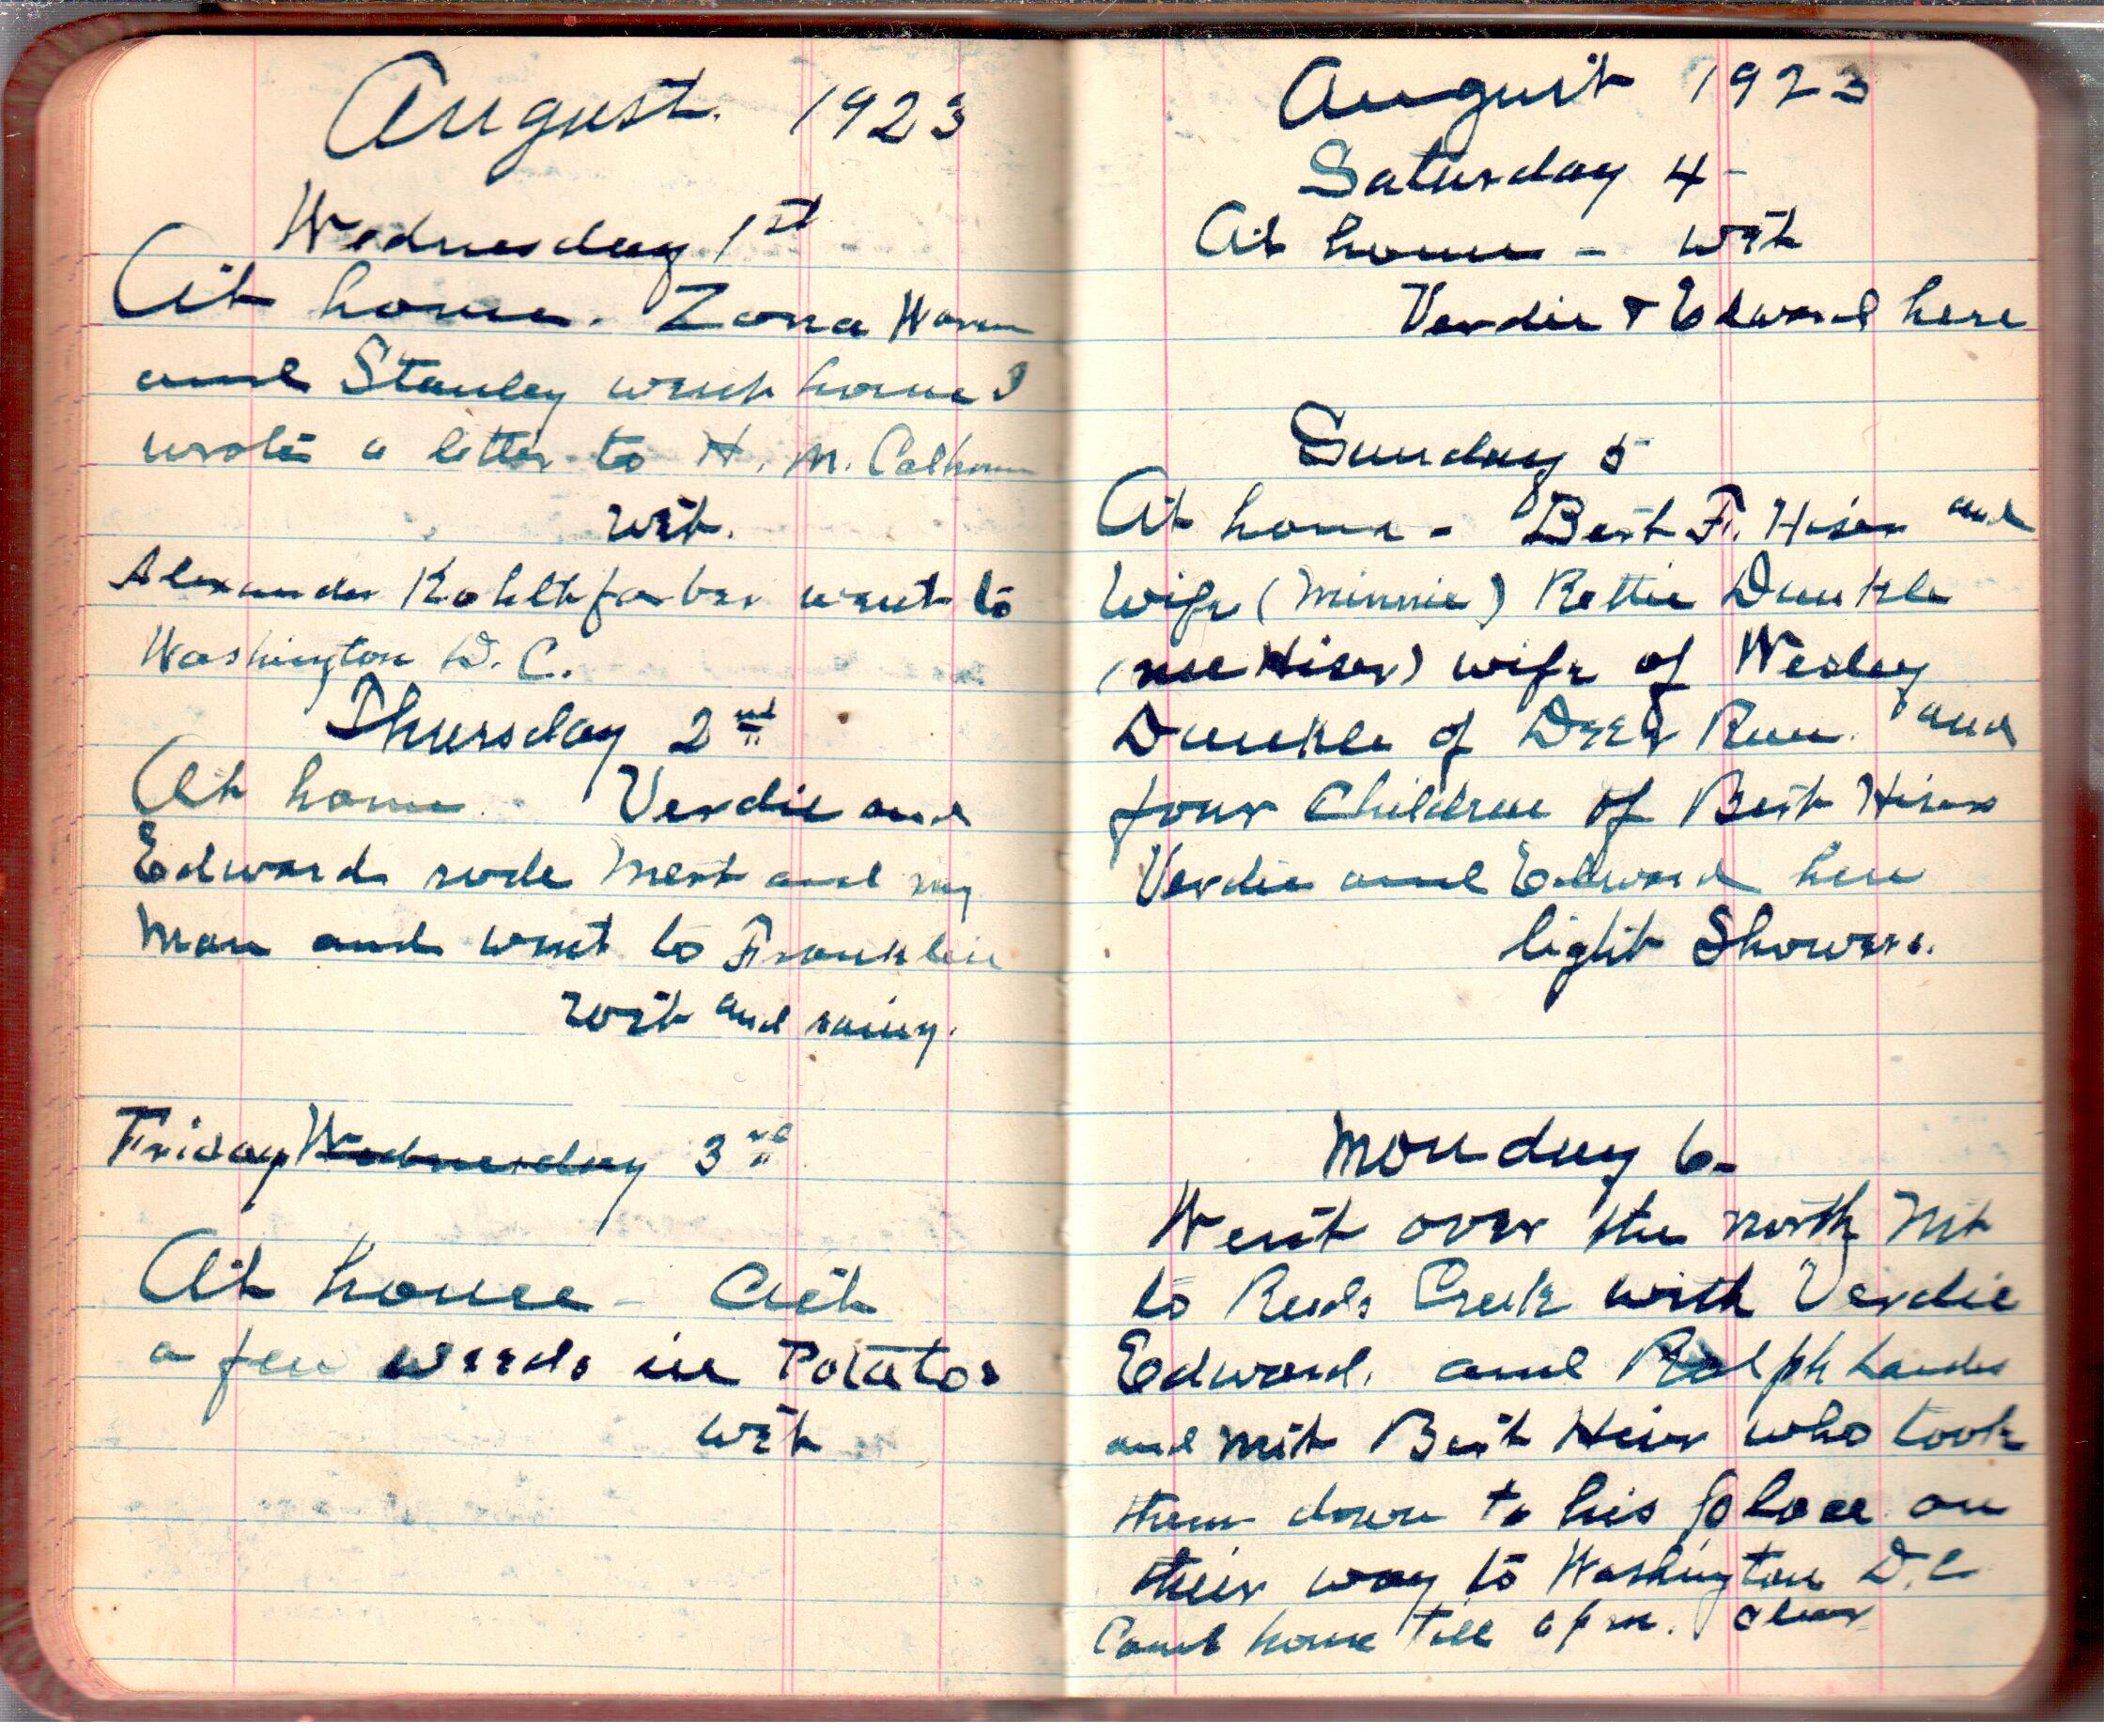 August. 1923
Wednesday 1st
At home. Zona
and Stanley went home I
wrote a letter to H. M. Calhoun
wet.
Alexander went to
Washington D. C.
Thursday 2nd
At home. Verdie and
Edward rode and my
and went to Franklin
wet and rainy.
Friday Wednesday 3rd
At home - Cut
a few weeds in Potatos
wet
August 1923
Saturday 4-
At home - wet
Verdie & Edward here
Sunday 5
At home - Bert F. Hiser and
Wife (Minnie) Dunkle
(nee Hiser) wife of Wesley
Dunkle of Deer Run. and
four Children of Bert Hiser
Verdie and Edward here
light Showers.
Monday 6-
Went over the north Mt
to Reeds Creek with Verdie
Edward. and Ralph Landes
and met Bert Hiser who took
them down to his place on
their way to Washington D.C
home till pm. clear